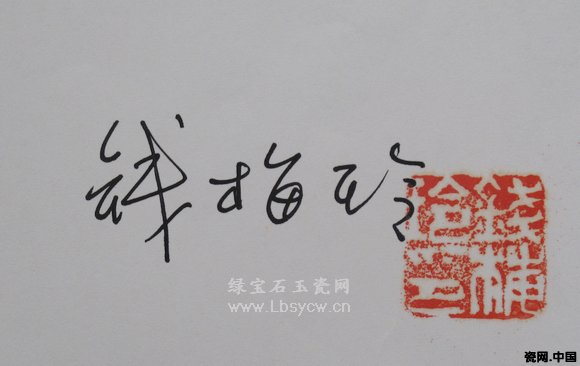 钱梅玲
钱梅玲印
绿宝石玉瓷网
www.Lbsycw.cn
瓷网.中国